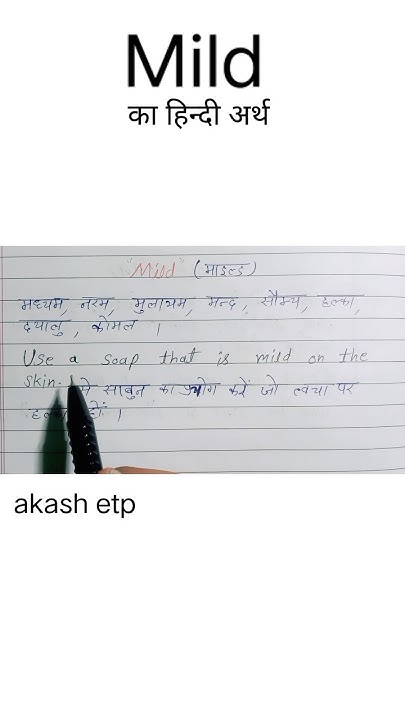 Mild
का हिन्दी अर्थ
"Mild" (माइल्ड)
मध्यम, नरम, मुलायम, मन्द, सौम्य, हल्का,
दयालु, कोमल ।
Use a soap that is mild on the
skin. साबुन का प्रयोग करें जो त्वचा पर
हों ।
akash etp